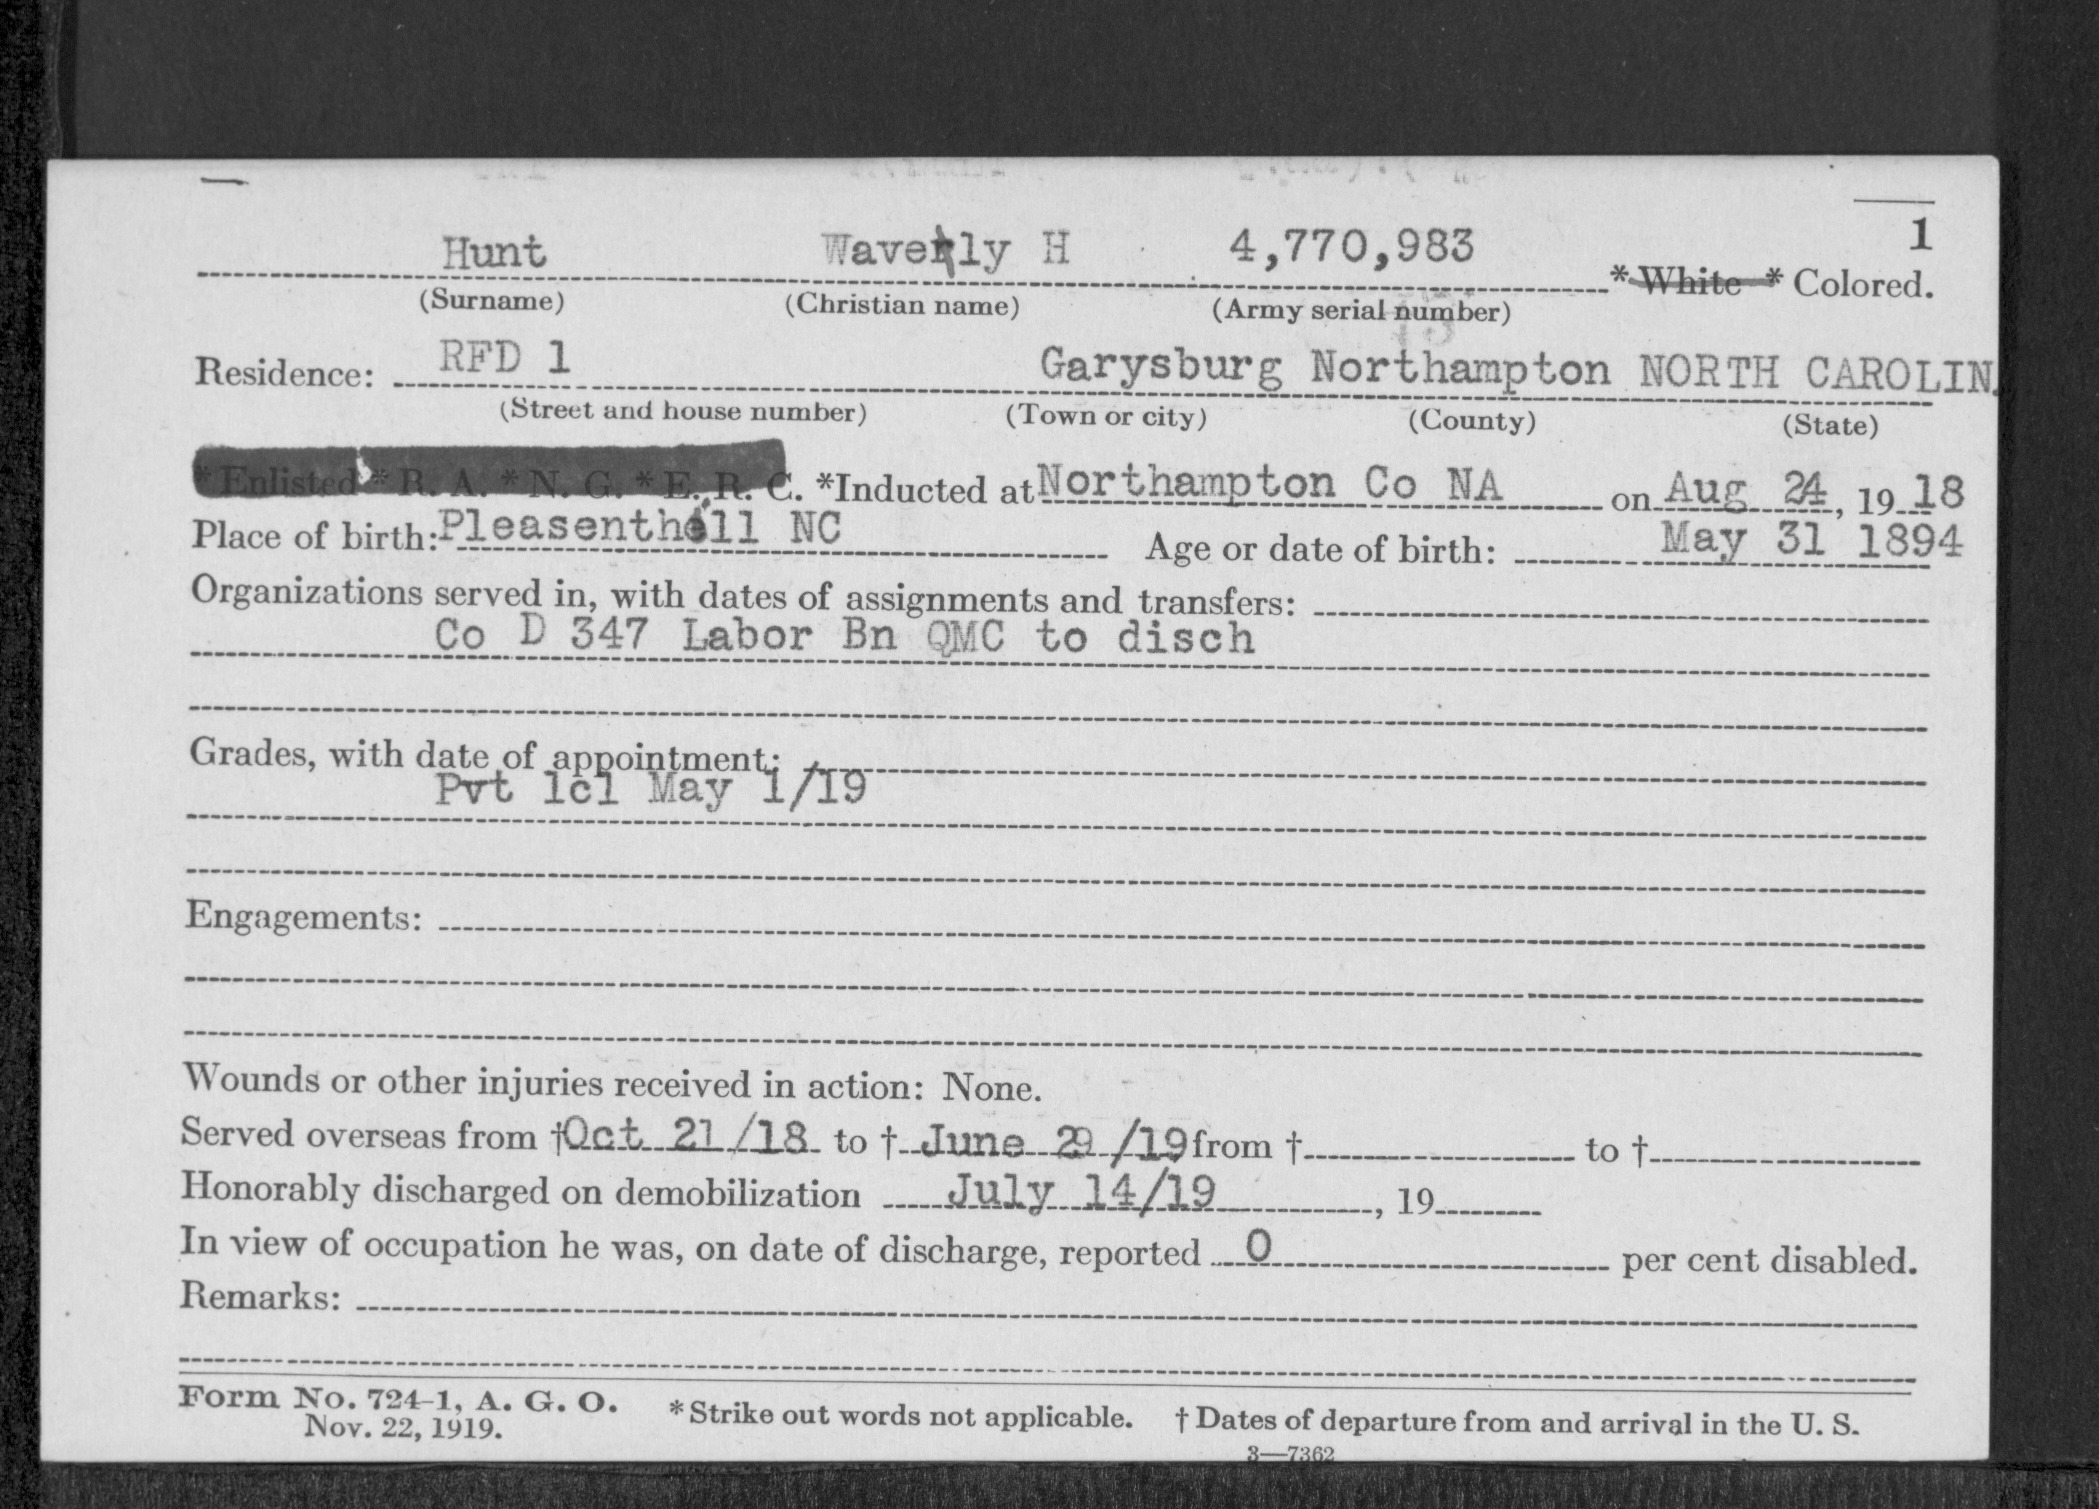 1
Hunt Waverly H 4,770,983 * White * Colored.
(Surname) (Christian name) (Army serial number)
Residence: RFD 1 Garysburg Northampton NORTH CAROLIN
(Street and house number) (Town or city) (County) (State)
* Enlisted * R. A. * N. G. * E. R. C. *Inducted at Northampton Co NA on Aug 24, 19 18
Place of birth: Pleasenthill NC Age or date of birth: May 31 1894
Organizations served in, with dates of assignments and transfers:
Co D 347 Labor Bn QMC to disch
Grades, with date of appointment:
Pvt 1cl May 1/19
Engagements:
Wounds or other injuries received in action: None.
Served overseas from † Oct 21/18 to † June 29/19 from † to †
Honorably discharged on demobilization July 14/19, 19
In view of occupation he was, on date of discharge, reported 0 per cent disabled.
Remarks:
Form No. 724-1, A. G. O. * Strike out words not applicable. † Dates of departure from and arrival in the U. S.
Nov. 22, 1919.
3—7362